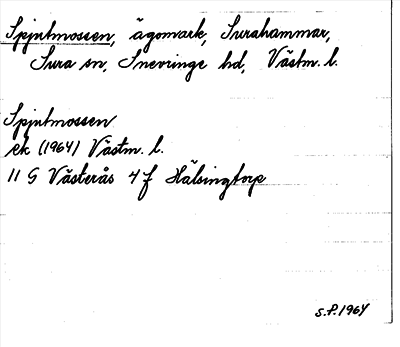 Spjutmossen, ägomark, Surahammar,
Sura sn, Snevringe hd, Västm. l.
Spjutmossen
ek (1964) Västm. l.
11 G Västerås 4 f Hälsingtorp
S.P. 1964